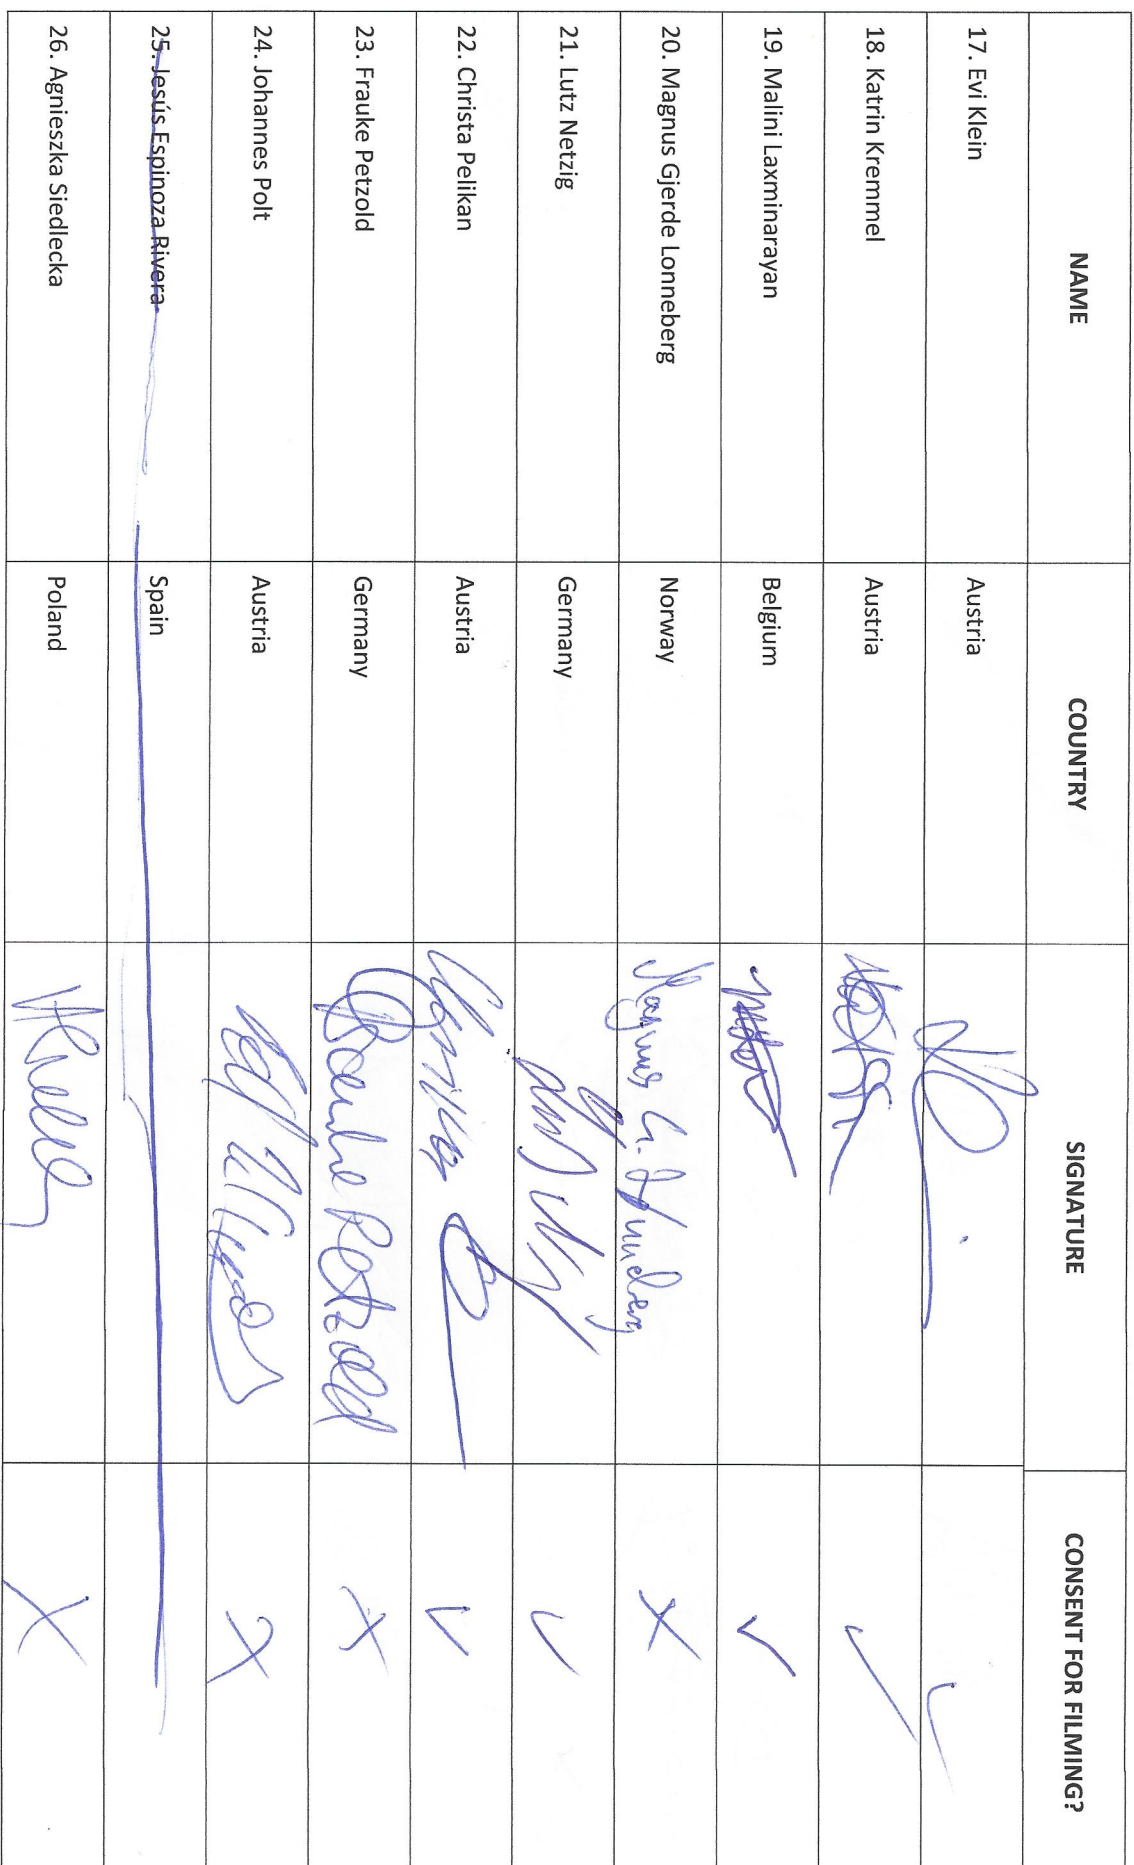 NAME COUNTRY SIGNATURE CONSENT FOR FILMING?
17. Evi Klein Austria ✓
18. Katrin Kremmel Austria ✓
19. Malini Laxminarayan Belgium ✓
20. Magnus Gjerde Lonneberg Norway Magnus G. X
21. Lutz Netzig Germany ✓
22. Christa Pelikan Austria ✓
23. Frauke Petzold Germany Frauke Petzold X
24. Johannes Polt Austria X
25. Jesús Espinoza Rivera Spain
26. Agnieszka Siedlecka Poland X